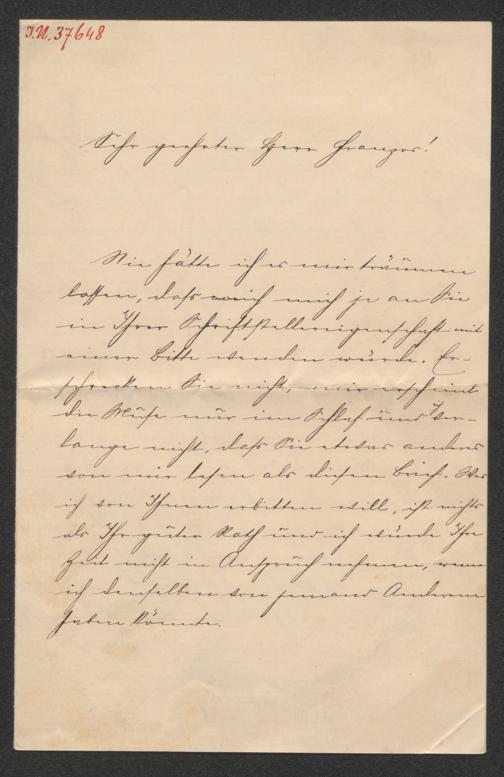 I.N. 37648
Sehr geehrter Herr Franzos!
Nie hätte ich es mir träumen
lassen, dass ich mich je an Sie
in Ihrer Schriftstellereigenschaft mit
einer Bitte wenden würde. Er-
schrecken Sie nicht, mir erscheint
die Muse nur im Schlaf und ich ver-
lange nicht, daß Sie etwas anderes
von mir lesen als diesen Brief. Was
ich von Ihnen erbitten will, ist nichts
als Ihr guter Rath und ich würde Ihre
Zeit nicht in Anspruch nehmen, wenn
ich denselben von jemand Anderem
haben könnte.